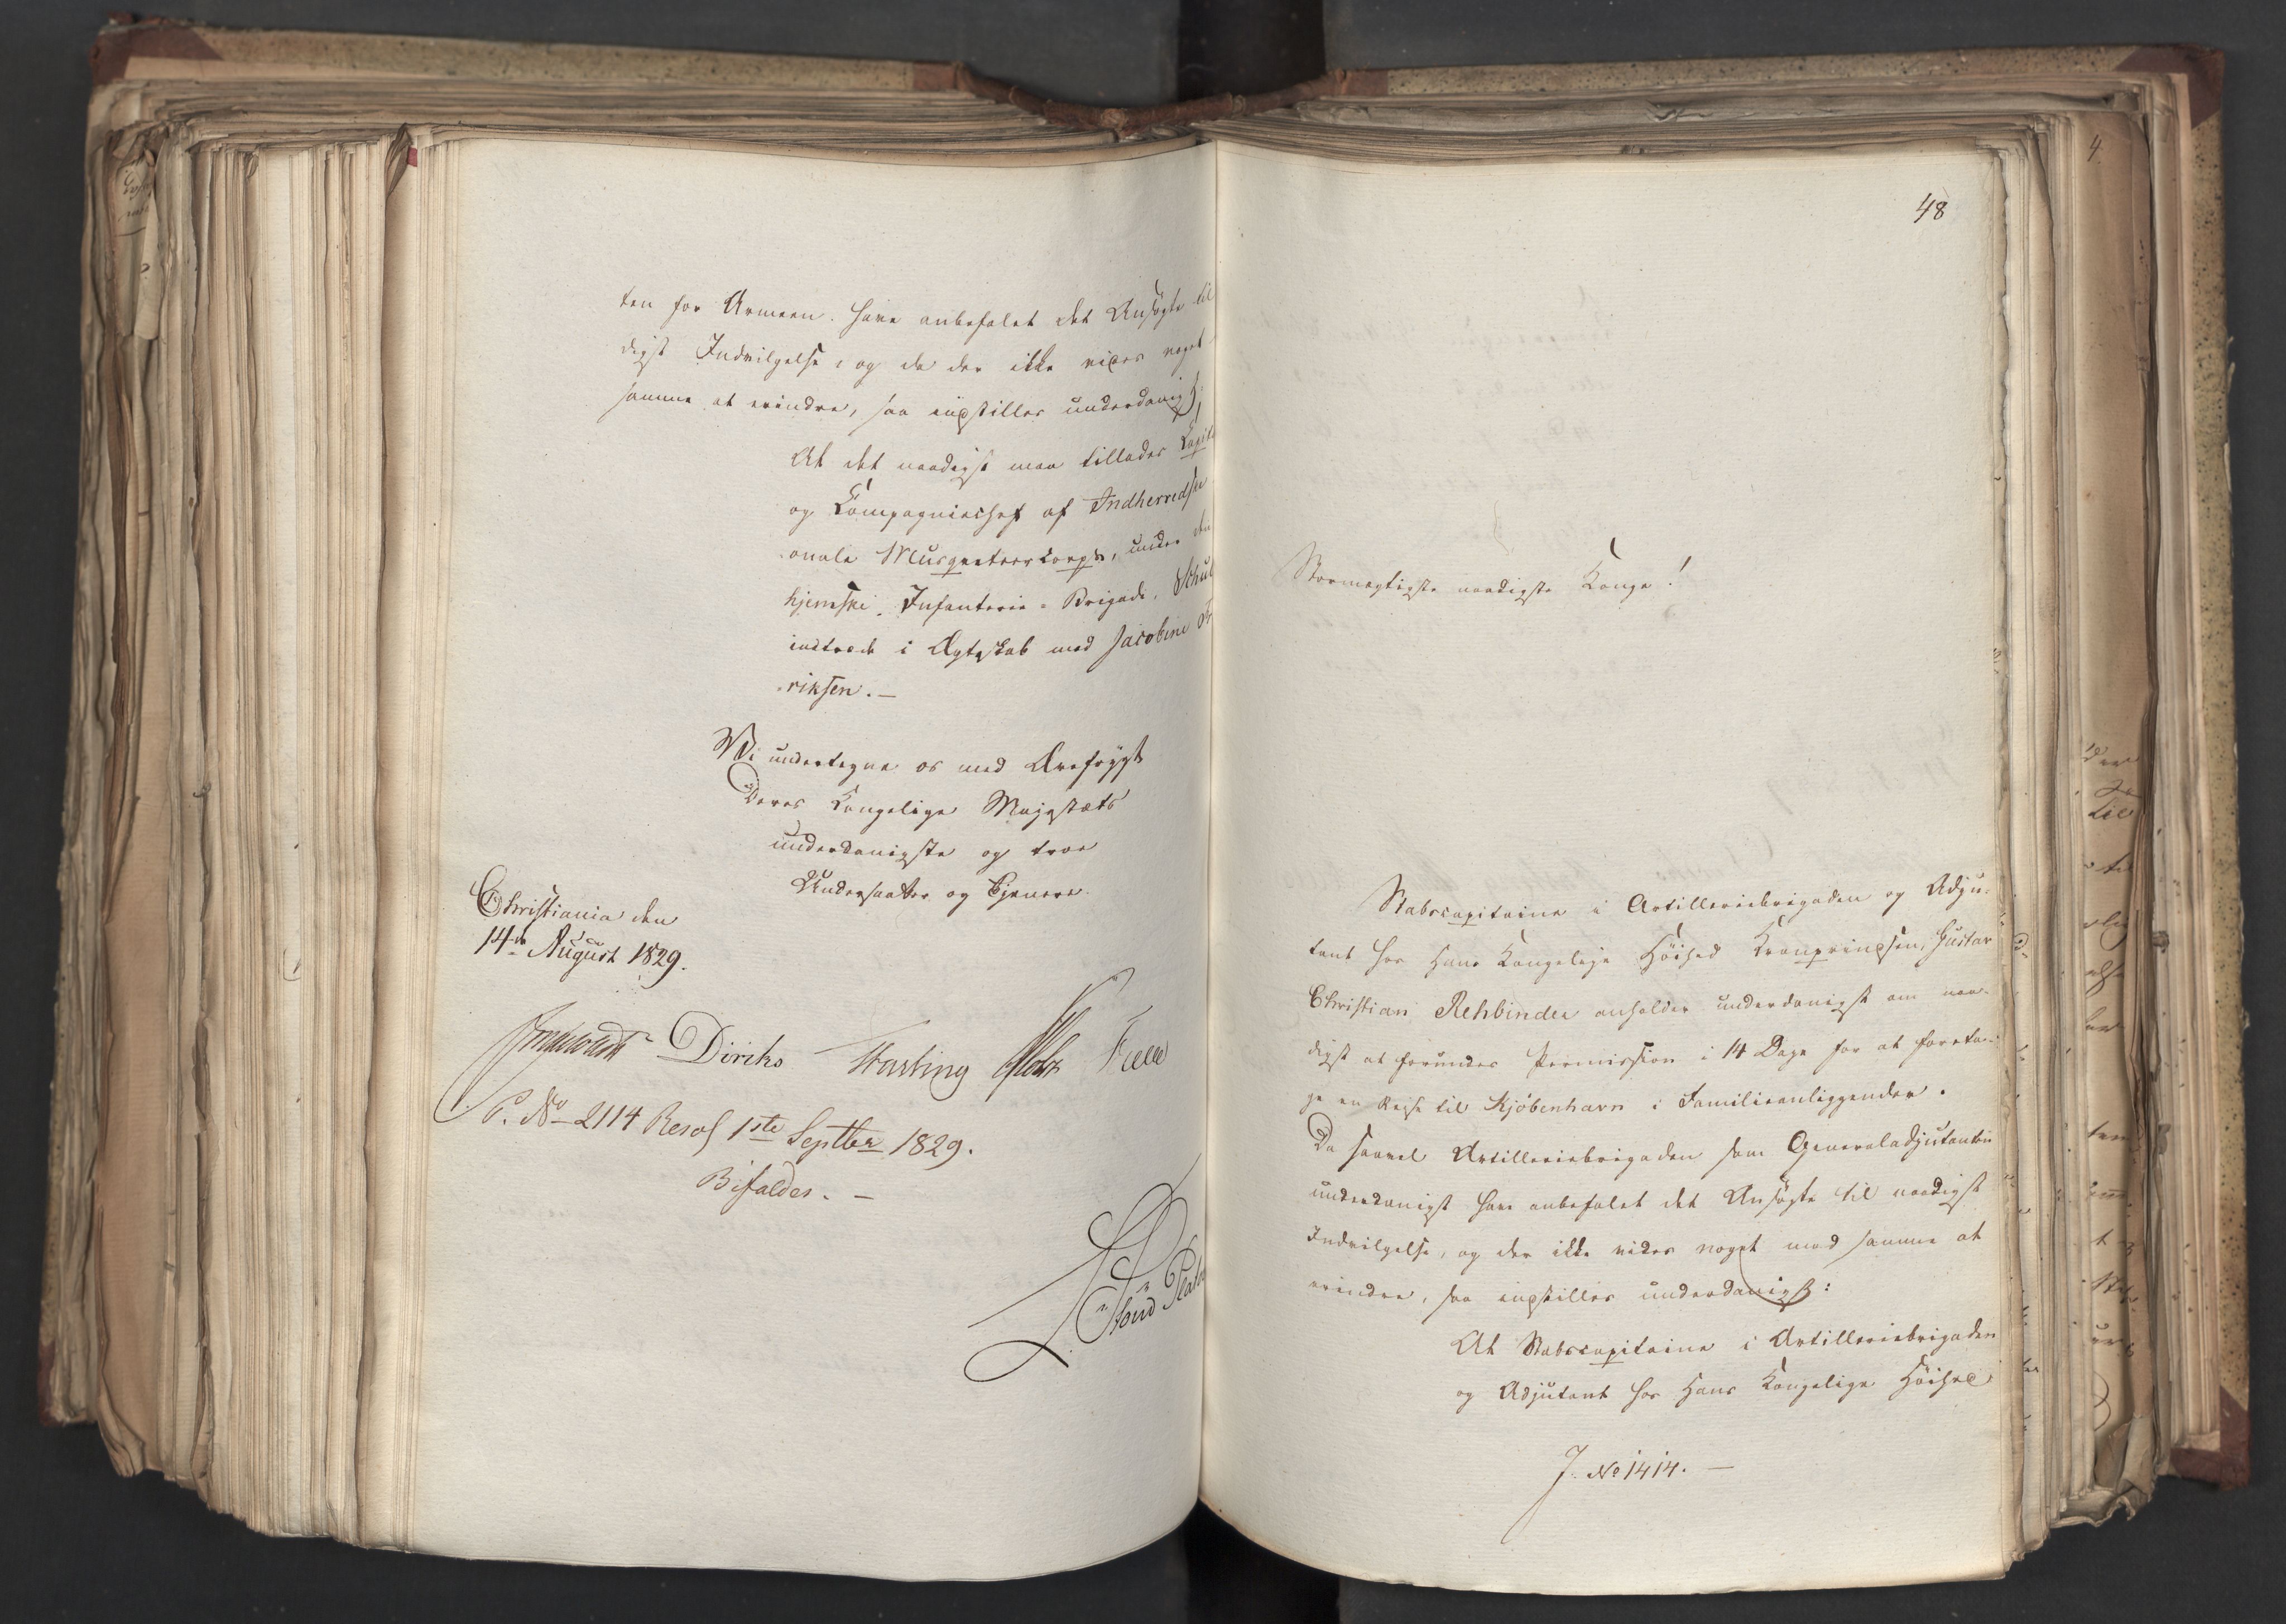 ten for Armeen have anbefalet det Ansøgte til
digst Indvilgelse, og da der ikke vides noget
samme at erindre, saa indstilles underdanigst;
At det naadigst maa tillades Capit
og Compagniechef af Indherredske
onale Musqueteercorps, under den
hjemske Infanterie-Brigade,
indtræde i Ægteskab med Jacobine
riksen.—
Vi undertegne os med Ærefrygt
Deres Kongelige Majestæts
underdanigste og troe
Undersaatter og Tjenere.
Christiania den
14de August 1829.
Diriks Fasting Holst
P. No 2114 Resol 1ste Septbr 1829.
Bifaldes.—
48
Stormægtigste naadigste Konge!
Stabscapitaine i Artilleriebrigaden og Adju-
tant hos Hans Kongelige Höihed Kronprindsen, Gustav
Christian Rehbinder anholder underdanigst om naa-
digst at forundes Permission i 14 Dage for at foreta-
ge en Reise til Kjöbenhavn i Familieanliggender.
Da saavel Artilleriebrigaden som Generaladjutanten
underdanigst have anbefalet det Ansögte til naadigst
Indvilgelse, og der ikke vides noget mod samme at
erindre, saa indstilles underdanigst:
At Stabscapitaine i Artilleriebrigaden
og Adjutant hos Hans Kongelige Höihed
J. No 1414.—